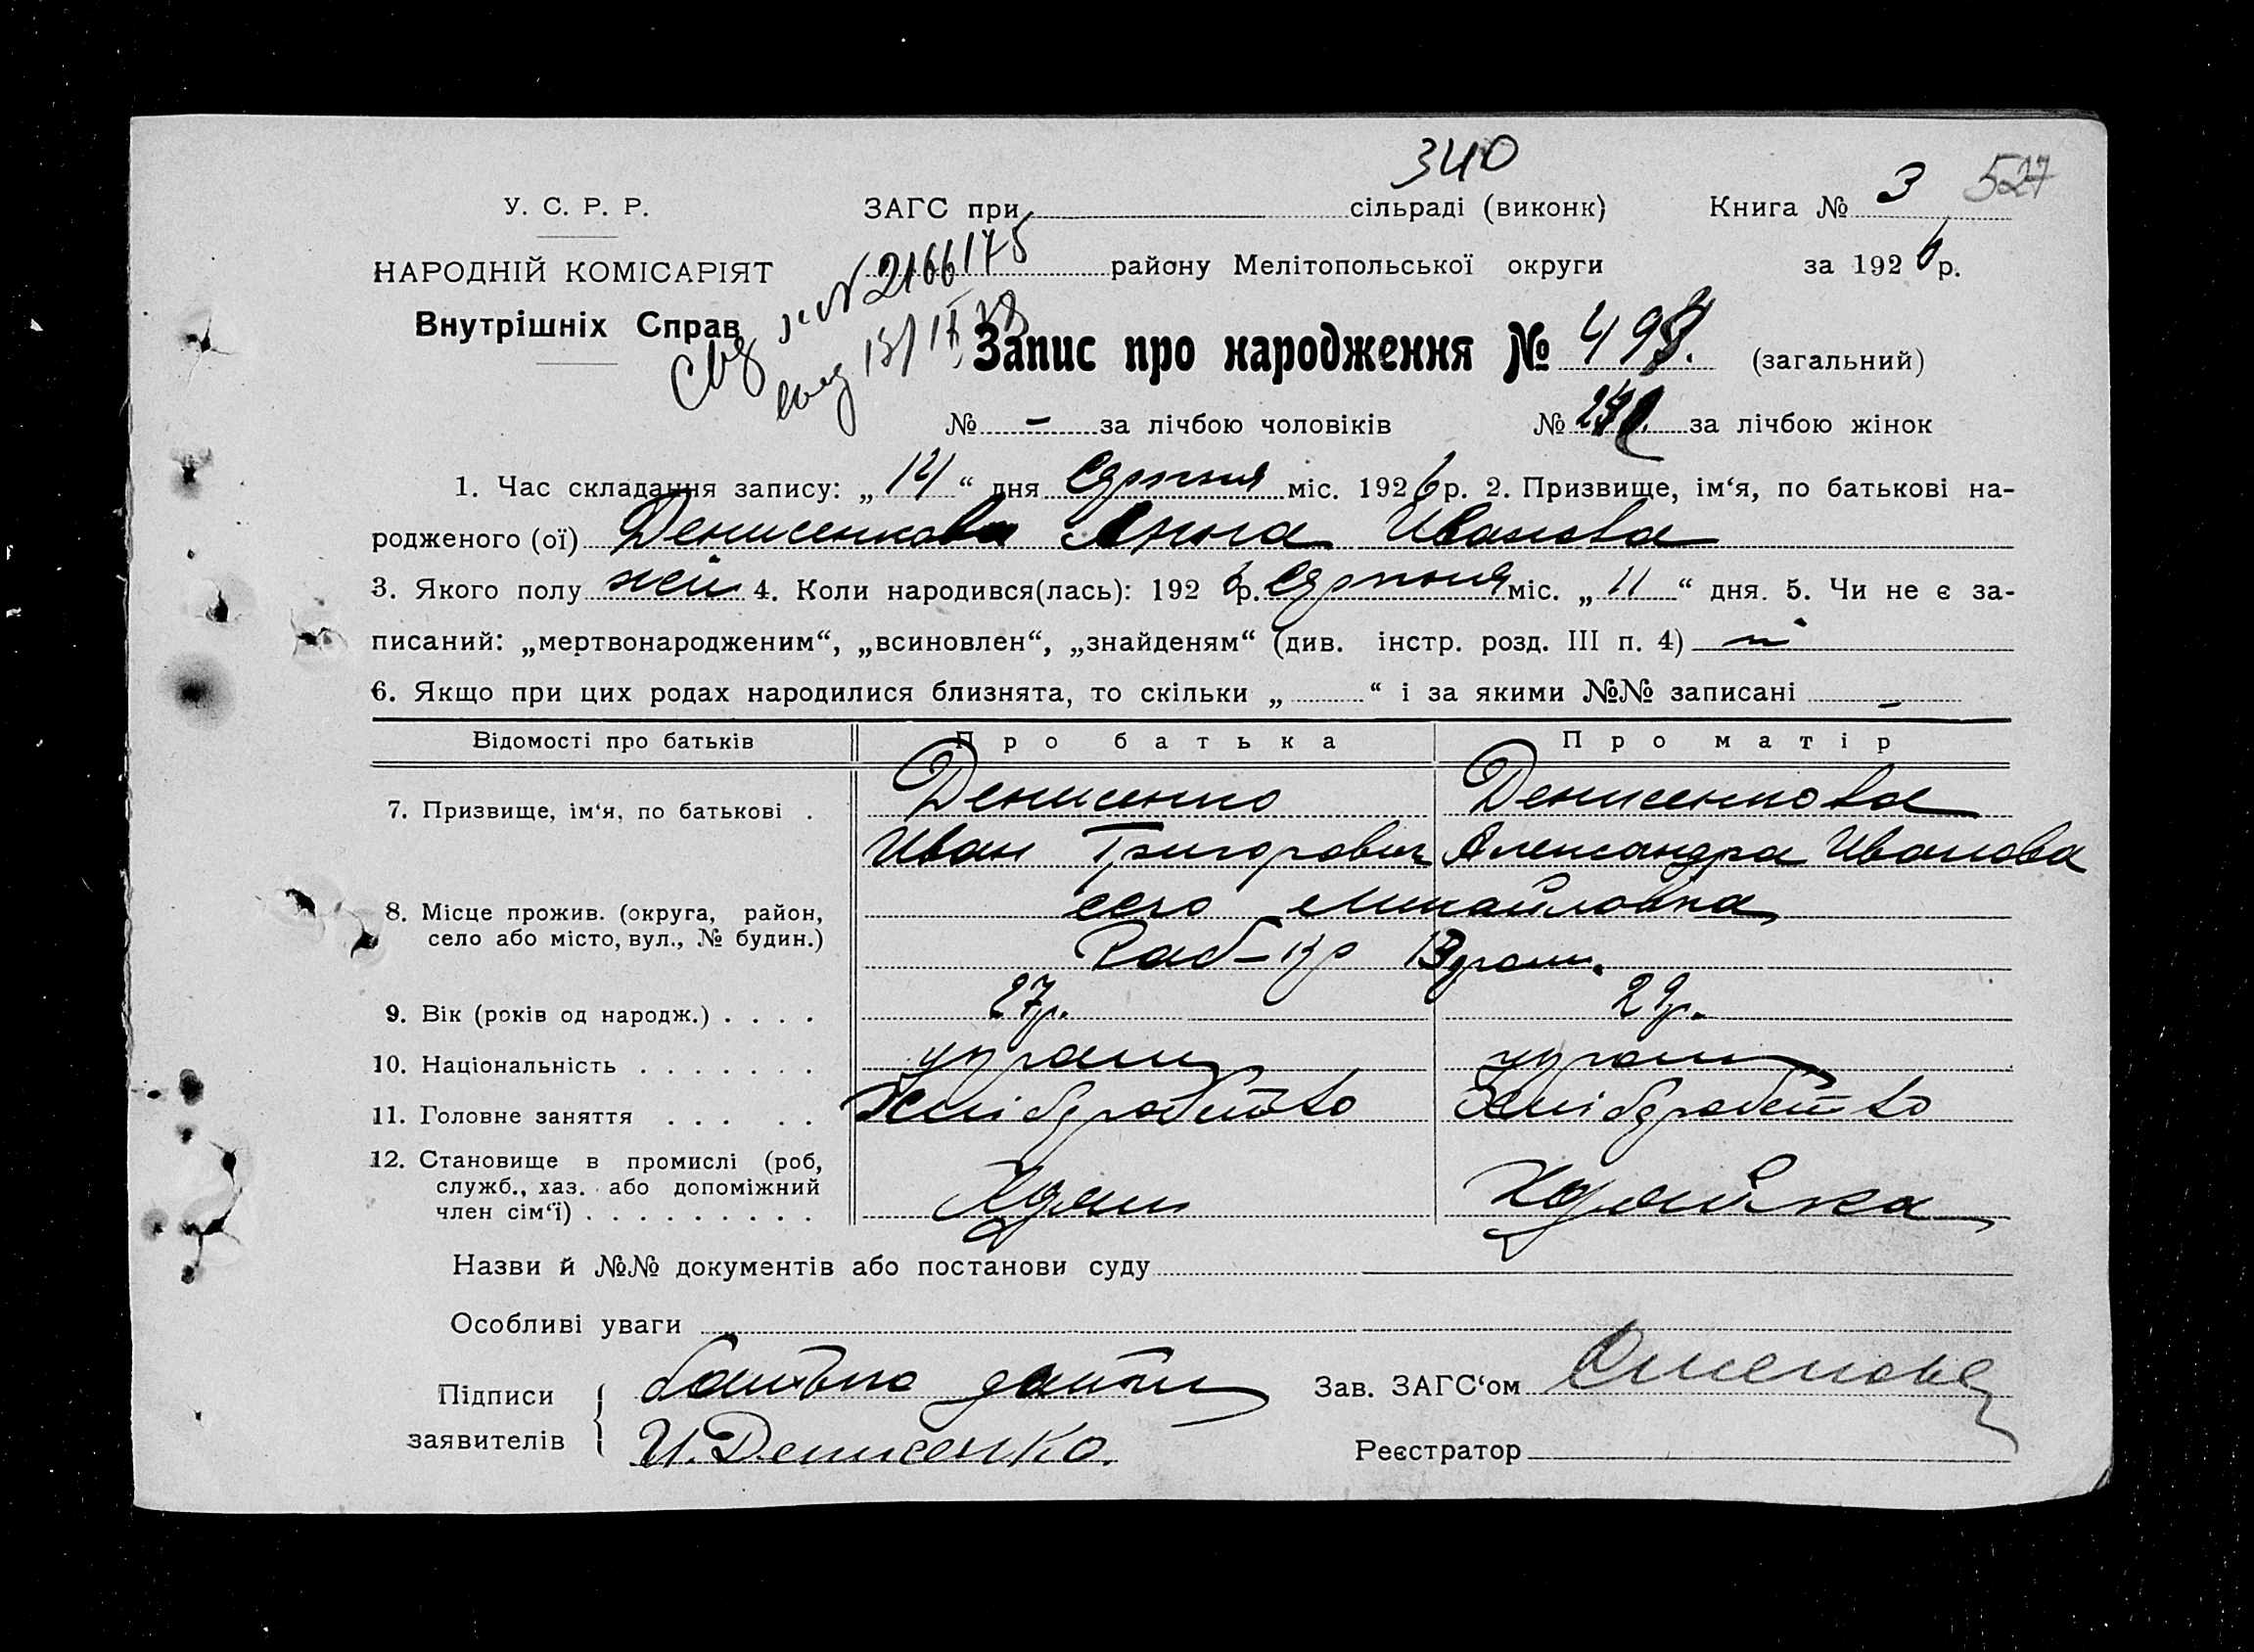 340
У. С. Р. Р. ЗАГС при сільраді (виконк) Книга № 3 527
НАРОДНІЙ КОМІСАРІЯТ району Мелітопольської округи за 1926 р.
№ 2166175
Внутрішніх Справ
Запис про народження № (загальний)
№ – за лічбою чоловіків № за лічбою жінок
1. Час складання запису: „14“ дня серпня міс. 1926 р. 2. Призвище, ім‘я, по батькові на-
родженого (ої) Денисенкова Анна Иванова
3. Якого полу жей 4. Коли народився(лась): 1926 р. серпня міс. „11“ дня. 5. Чи не є за-
писаний: „мертвонародженим“, „всиновлен“, „знайденям“ (див. інстр. розд. III п. 4) ні
6. Якщо при цих родах народилися близнята, то скільки „ “ і за якими №№ записані –
Відомості про батьків Про батька Про матір
7. Призвище, ім‘я, по батькові . Денисенко Денисенкова
Иван Григорович Александра Иванова
8. Місце прожив. (округа, район, село Михайловка
село або місто, вул., № будин.)
9. Вік (років од народж.) . . . . 27р. 29р.
10. Національність . . . . . . . украин украин
11. Головне заняття . . . . . Хлібробство Хлібробство
12. Становище в промислі (роб,
служб., хаз. або допоміжний
член сім‘ї) . . . . . . . . . Хдзяин Хдзяйка
Назви й №№ документів або постанови суду
Особливі уваги
Підписи батько Зав. ЗАГС‘ом
заявителів И. Денисенко. Реєстратор